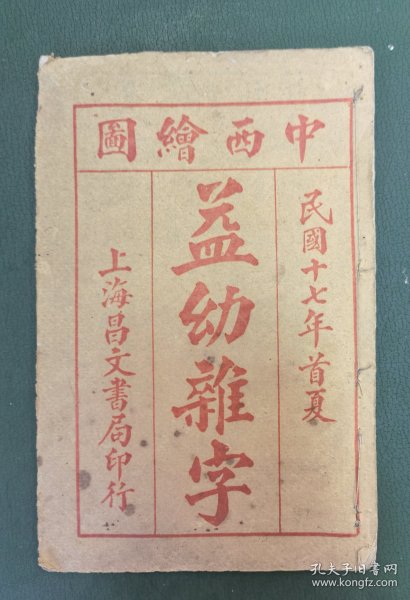 中西繪圖
民國十七年首夏
益幼雜字
上海昌文書局印行
孔夫子旧书网
www.kongfz.com